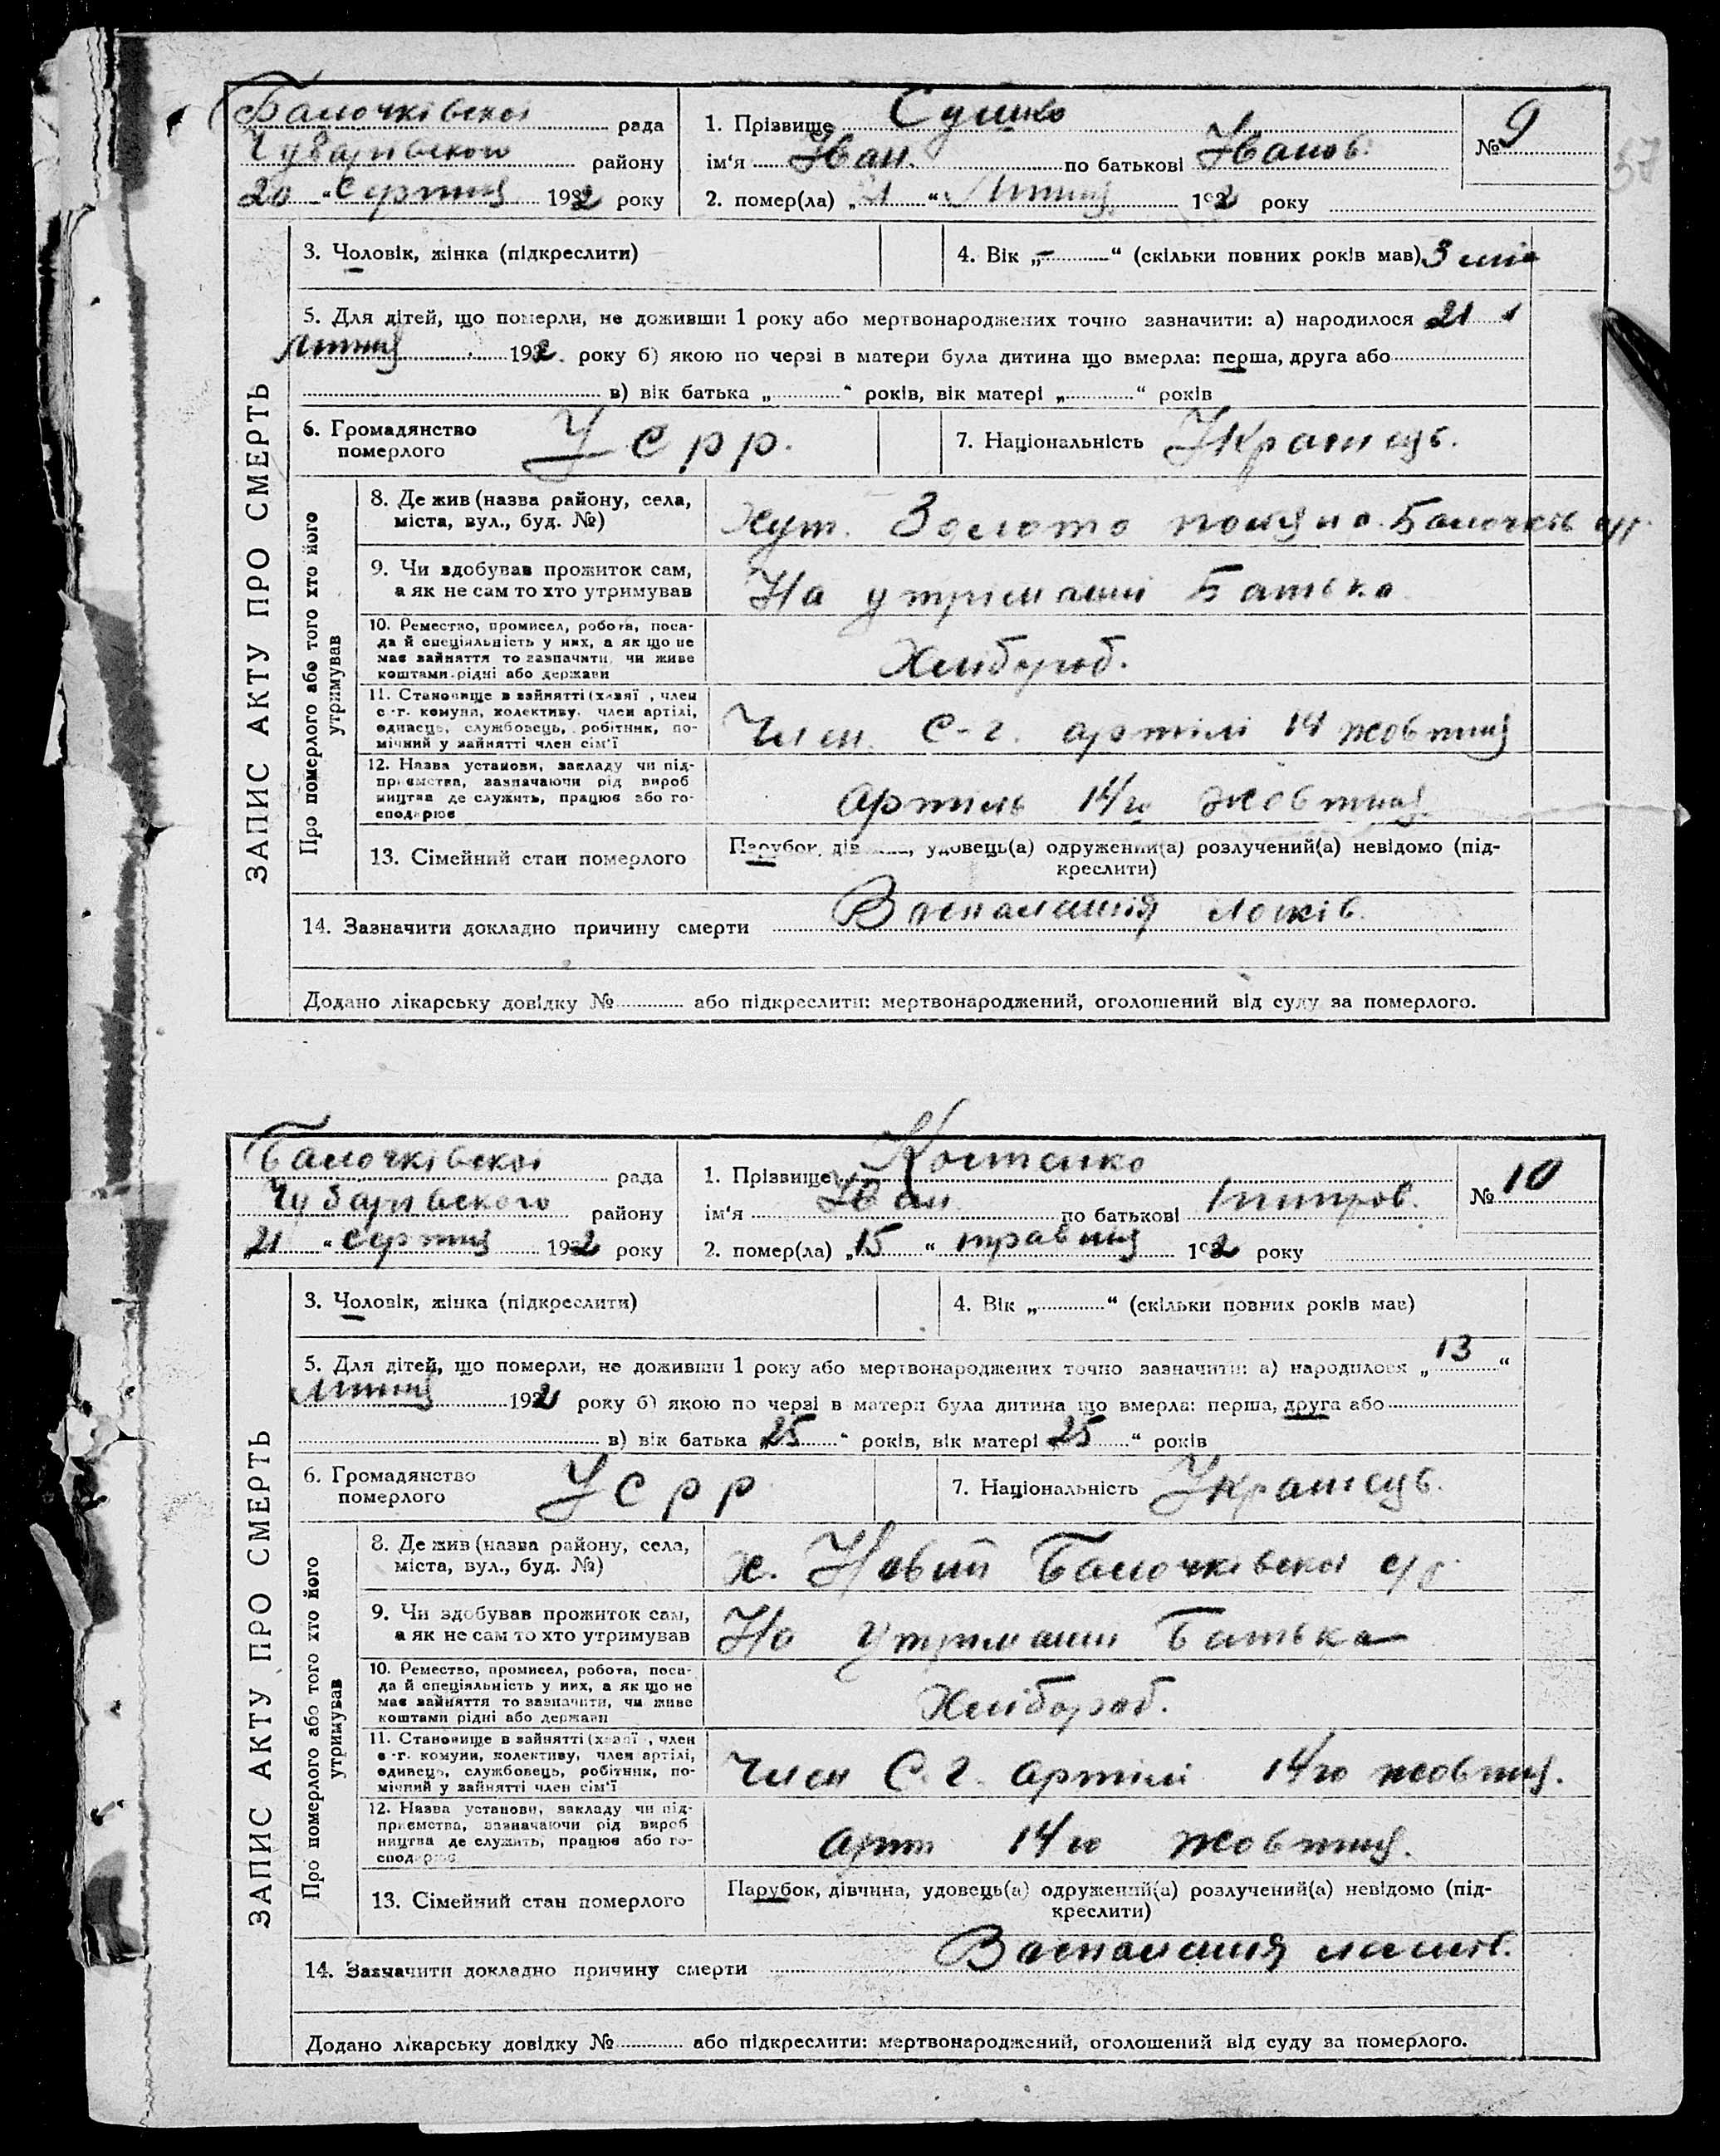 Балочківської рада
Чубарівського району
20 " Серпня 1932 року
1. Прізвище Сушко
ім'я Іван по батькові Іванов.
№ 9
57
2. помер(ла) „21 " Липня 1932 року
3. Чоловік, жінка (підкреслити)
4. Вік „-" (скільки повних років мав) 3 дні
5. Для дітей, що померли, не доживши 1 року або мертвонароджених точно зазначити: а) народилося 21
Липня 1932 року б) якою по черзі в матери була дитина що вмерла: перша, друга або
в) вік батька „ " років, вік матері „ " років
6. Громадянство
померлого
УСРР.
7. Національність Українець.
ЗАПИС АКТУ ПРО СМЕРТЬ
Про померлого або того хто його
утримував
8. Де жив (назва району, села,
міста, вул., буд. №)
Хут. Золота поляна Балочків с/р.
9. Чи здобував прожиток сам,
а як не сам то хто утримував
На утриманні Батька
10. Ремество, промисел, робота, поса-
да й спеціяльність у них, а як що не
має зайняття то зазначити, чи живе
коштами рідні або держави
Хлібороб.
11. Становище в зайнятті (хазяї, член
с.-г. комуни, колективу, член артілі,
одинець, службовець, робітник, по-
мічний у зайнятті член сім'ї
Член С-г. артілі 14 жовтня
12. Назва установи, закладу чи під-
приємства, зазначаючи рід вироб
ництва де служить, працює або го-
сподарює
Артиль 14го жовтня.
13. Сімейний стан померлого
Парубок, дівчина, удовець(а) одружений(а) розлучений(а) невідомо (під-
креслити)
14. Зазначити докладно причину смерти Воспаления
Додано лікарську довідку № або підкреслити: мертвонароджений, оголошений від суду за померлого.
Балочківської рада
Чубарівського району
21 " Серпня 1932 року
1. Прізвище Костенко
ім'я Іван по батькові
№ 10
2. помер(ла) „15 " травня 1932 року
3. Чоловік, жінка (підкреслити)
4. Вік „ " (скільки повних років мав)
5. Для дітей, що померли, не доживши 1 року або мертвонароджених точно зазначити: а) народилося „13 "
Липня 1931 року б) якою по черзі в матери була дитина що вмерла: перша, друга або
в) вік батька „25 " років, вік матері „25 " років
6. Громадянство
померлого
УСРР
7. Національність Українець.
ЗАПИС АКТУ ПРО СМЕРТЬ
Про померлого або того хто його
утримував
8. Де жив (назва району, села,
міста, вул., буд. №)
х. Новий Балочківської с/р.
9. Чи здобував прожиток сам,
а як не сам то хто утримував
На утриманні Батька
10. Ремество, промисел, робота, поса-
да й спеціяльність у них, а як що не
має зайняття то зазначити, чи живе
коштами рідні або держави
Хлібороб.
11. Становище в зайнятті (хазяї, член
с.-г. комуни, колективу, член артілі,
одинець, службовець, робітник, по-
мічний у зайнятті член сім'ї
Член С.Г. артілі 14го жовтня.
12. Назва установи, закладу чи під-
приємства, зазначаючи рід вироб
ництва де служить, працює або го-
сподарює
Арт 14го жовтня.
13. Сімейний стан померлого
Парубок, дівчина, удовець(а) одружений(а) розлучений(а) невідомо (під-
креслити)
14. Зазначити докладно причину смерти Воспаления
Додано лікарську довідку № або підкреслити: мертвонароджений, оголошений від суду за померлого.